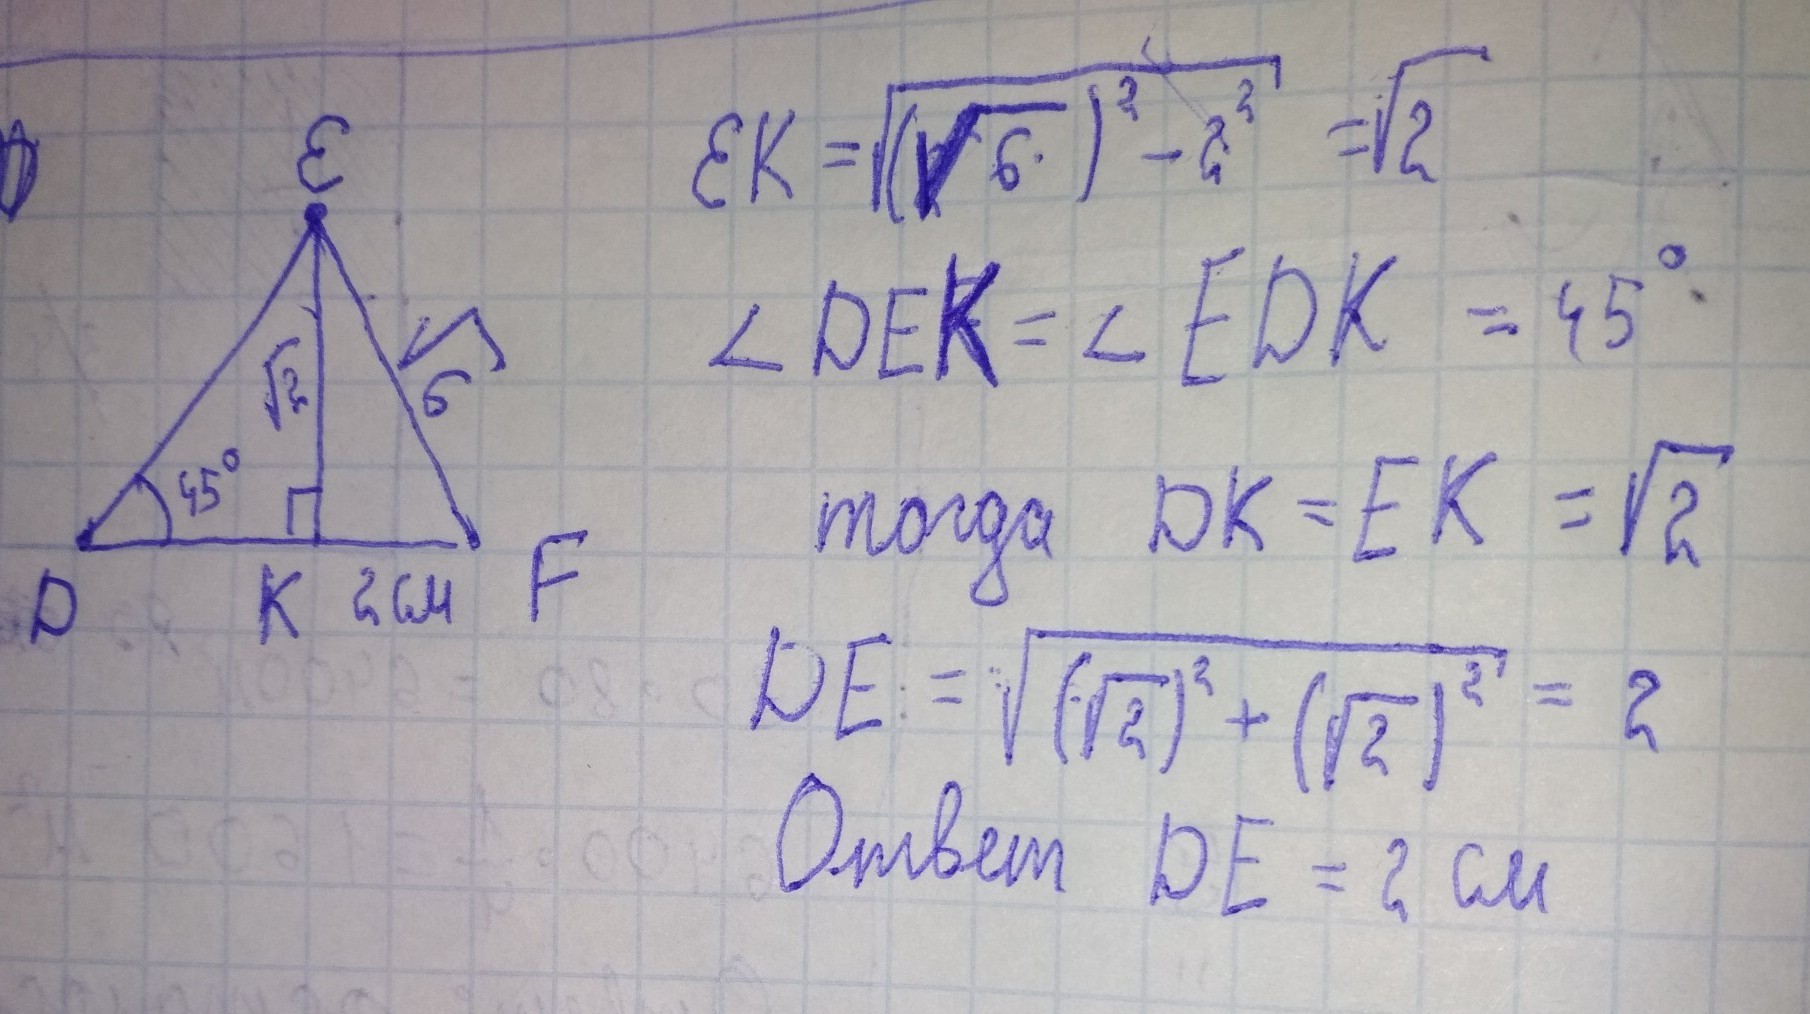 E
√2
√6
45°
D K 2см F
EK = √((√6)² - 2²) = √2
∠DEK = ∠EDK = 45°
тогда DK = EK = √2
DE = √((√2)² + (√2)²) = 2
Ответ DE = 2 см